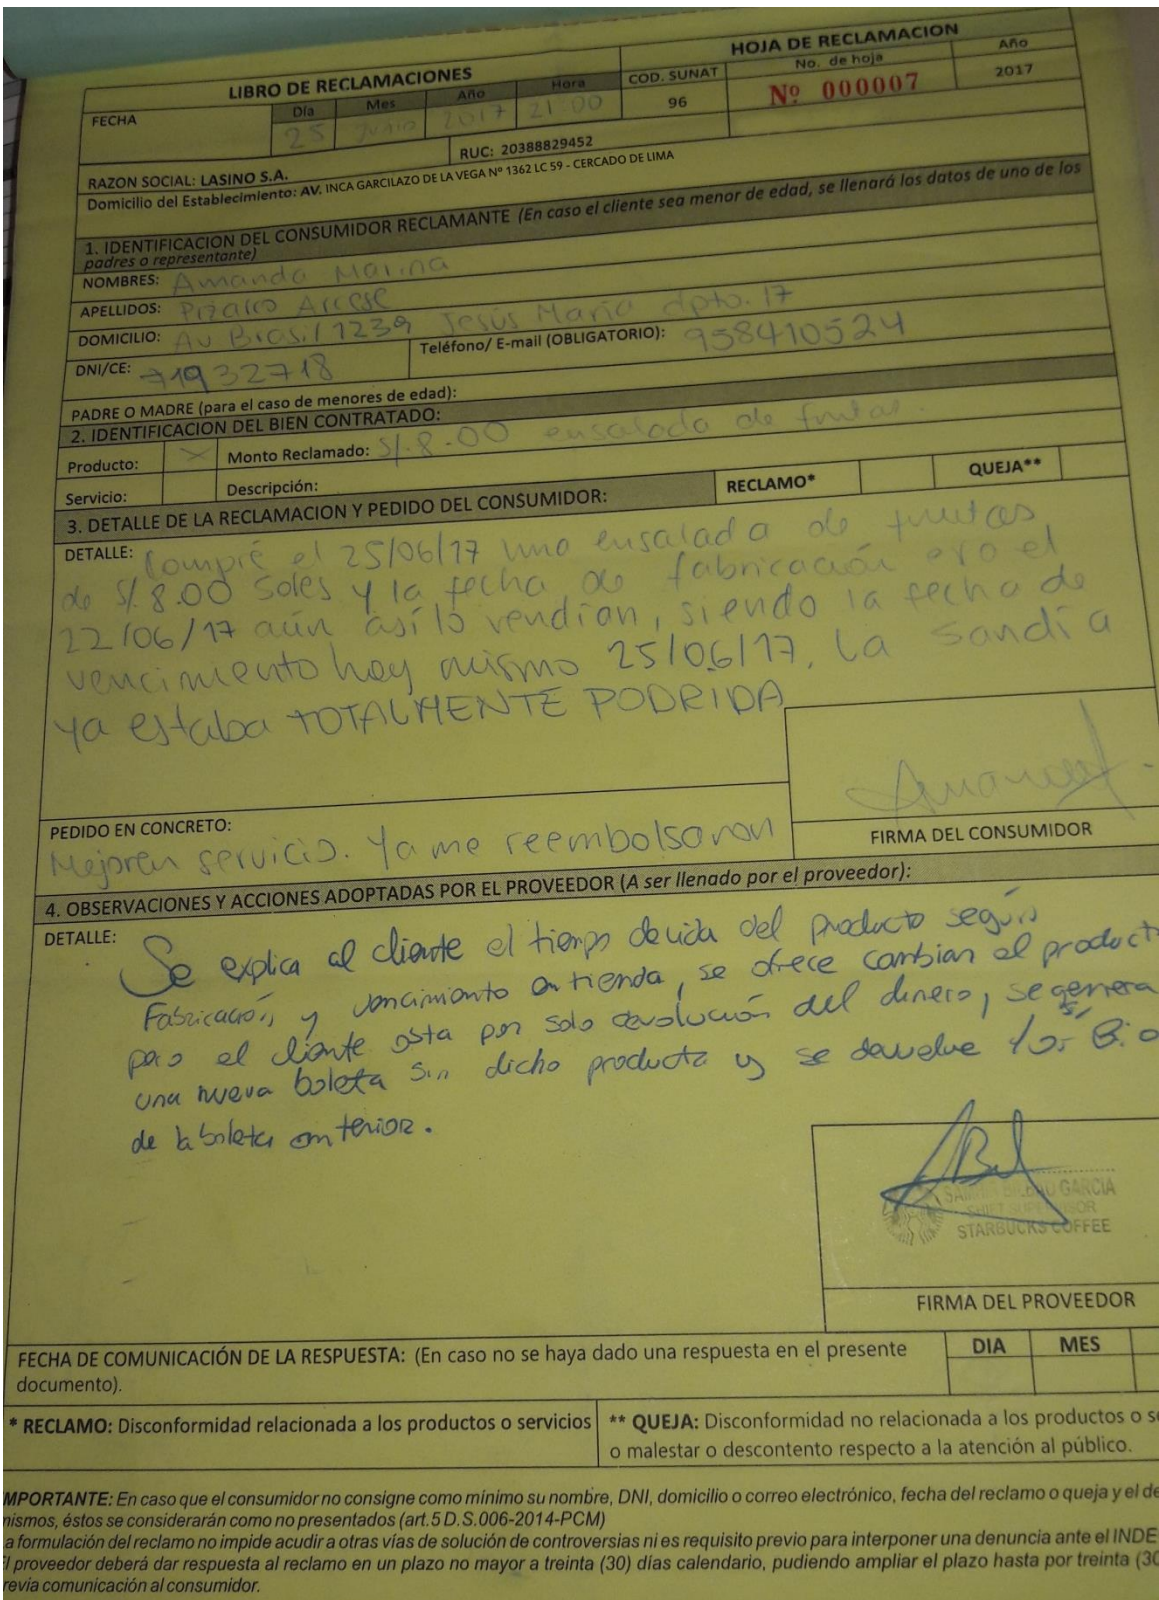 LIBRO DE RECLAMACIONES
HOJA DE RECLAMACION
FECHA
Día Mes Año Hora
COD. SUNAT
No. de hoja
Año
25 Junio 2017 21:00
96
Nº 000007
2017
RAZON SOCIAL: LASINO S.A.
RUC: 20388829452
Domicilio del Establecimiento: AV. INCA GARCILAZO DE LA VEGA Nº 1362 LC 59 - CERCADO DE LIMA
1. IDENTIFICACION DEL CONSUMIDOR RECLAMANTE (En caso el cliente sea menor de edad, se llenará los datos de uno de los
padres o representante)
NOMBRES: Amanda Marina
APELLIDOS: Pizarro
DOMICILIO: Av Brasil 1239 Jesús María dpto. 17
DNI/CE: 71932718
Teléfono/ E-mail (OBLIGATORIO): 958410524
PADRE O MADRE (para el caso de menores de edad):
2. IDENTIFICACION DEL BIEN CONTRATADO:
Producto: X Monto Reclamado: S/. 8.00 ensalada de frutas.
Servicio: Descripción:
RECLAMO* QUEJA**
3. DETALLE DE LA RECLAMACION Y PEDIDO DEL CONSUMIDOR:
DETALLE: Compré el 25/06/17 una ensalada de frutas,
de S/. 8.00 soles y la fecha de fabricación era el
22/06/17 aún así lo vendían, siendo la fecha de
vencimiento hoy mismo 25/06/17. La sandía
ya estaba TOTALMENTE PODRIDA
PEDIDO EN CONCRETO:
Mejoren servicio. Ya me reembolsaron
FIRMA DEL CONSUMIDOR
4. OBSERVACIONES Y ACCIONES ADOPTADAS POR EL PROVEEDOR (A ser llenado por el proveedor):
DETALLE: Se explica al cliente el tiempo de vida del producto según
Fabricación y vencimiento en tienda, se ofrece cambiar el product
pero el cliente esta por solo devolución del dinero, se genera
una nueva boleta sin dicho producto y se devuelve los S/ 8.0
de la boleta anterior.
GARCIA
SHIFT SUPERVISOR
STARBUCKS COFFEE
FIRMA DEL PROVEEDOR
FECHA DE COMUNICACIÓN DE LA RESPUESTA: (En caso no se haya dado una respuesta en el presente
documento).
DIA MES
* RECLAMO: Disconformidad relacionada a los productos o servicios
** QUEJA: Disconformidad no relacionada a los productos o se
o malestar o descontento respecto a la atención al público.
MPORTANTE: En caso que el consumidor no consigne como mínimo su nombre, DNI, domicilio o correo electrónico, fecha del reclamo o queja y el de
nismos, éstos se considerarán como no presentados (art.5 D.S.006-2014-PCM)
a formulación del reclamo no impide acudir a otras vías de solución de controversias ni es requisito previo para interponer una denuncia ante el INDE
l proveedor deberá dar respuesta al reclamo en un plazo no mayor a treinta (30) días calendario, pudiendo ampliar el plazo hasta por treinta (30
revia comunicación al consumidor.